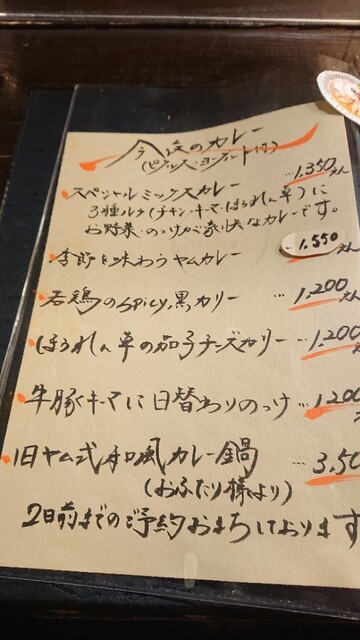 今夜のカレー
(ピクルス・ヨーグルト付)
スペシャルミックスカレー …1.350えん
3種ルゥ(チキン・キーマ・ほうれん草)に
お野菜のっけが豪快なカレーです。
季節を味わうヤムカレー …1.550えん
若鶏のspicy黒カリー …1.200えん
ほうれん草の茄子チーズカリー …1.200えん
牛豚キーマに日替わりのっけ …1.200
旧ヤム式和風カレー鍋 …3.50
(おふたり様より)
2日前までのご予約おまちしております